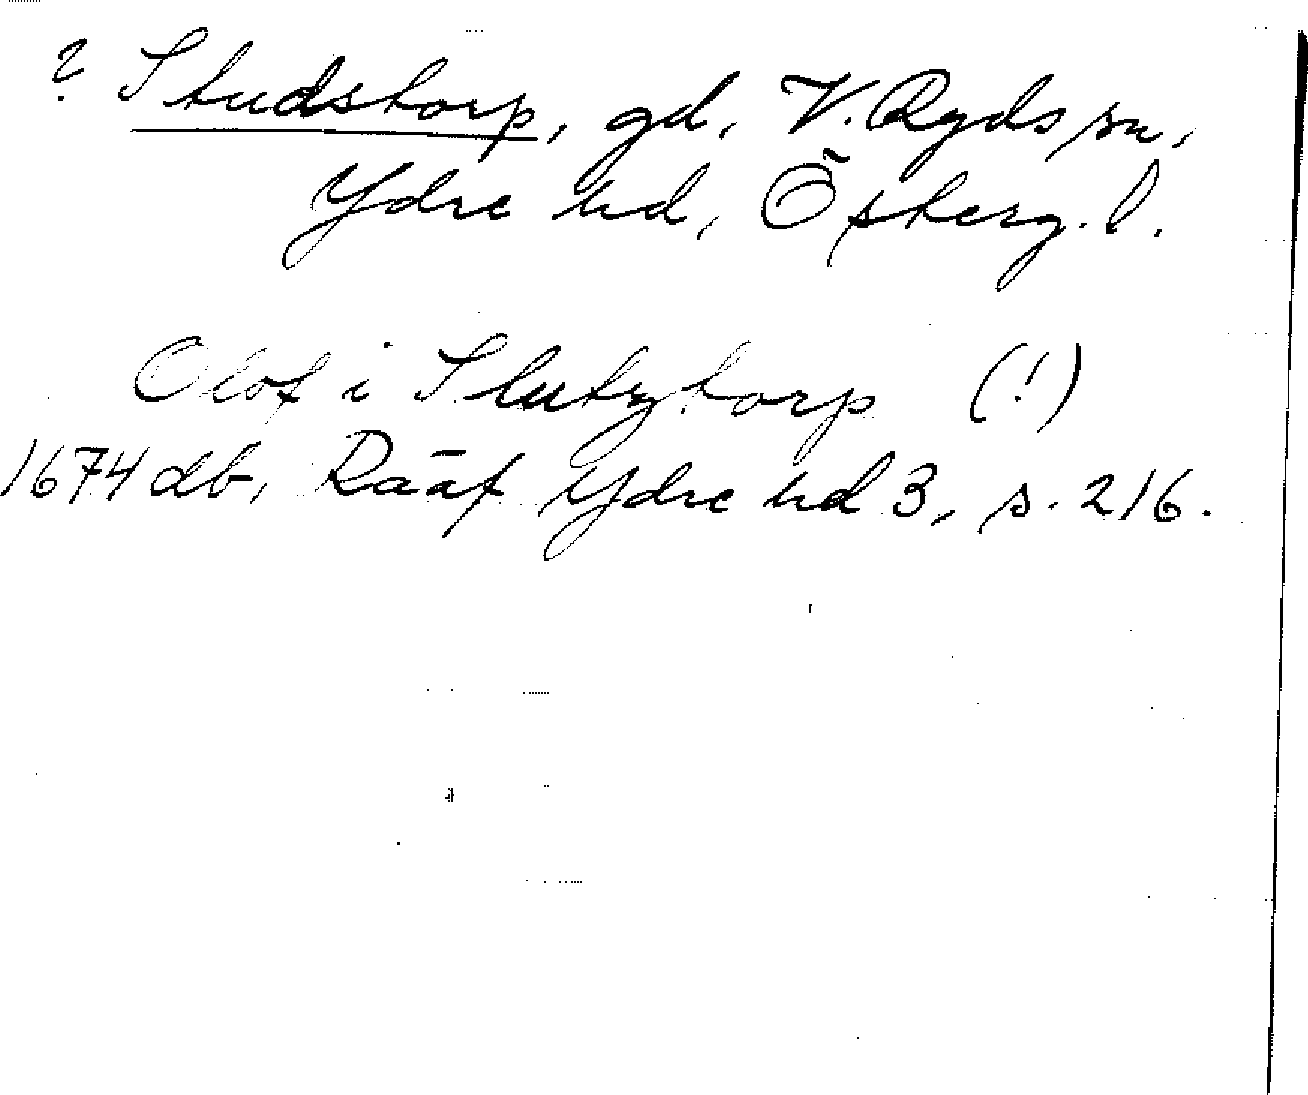 ? Studstorp, gd, V. Ryds sn,
Ydre hd, Österg. l.
Olof i Slutztorp (!)
1674 db, Rääf Ydre hd 3, s. 216.